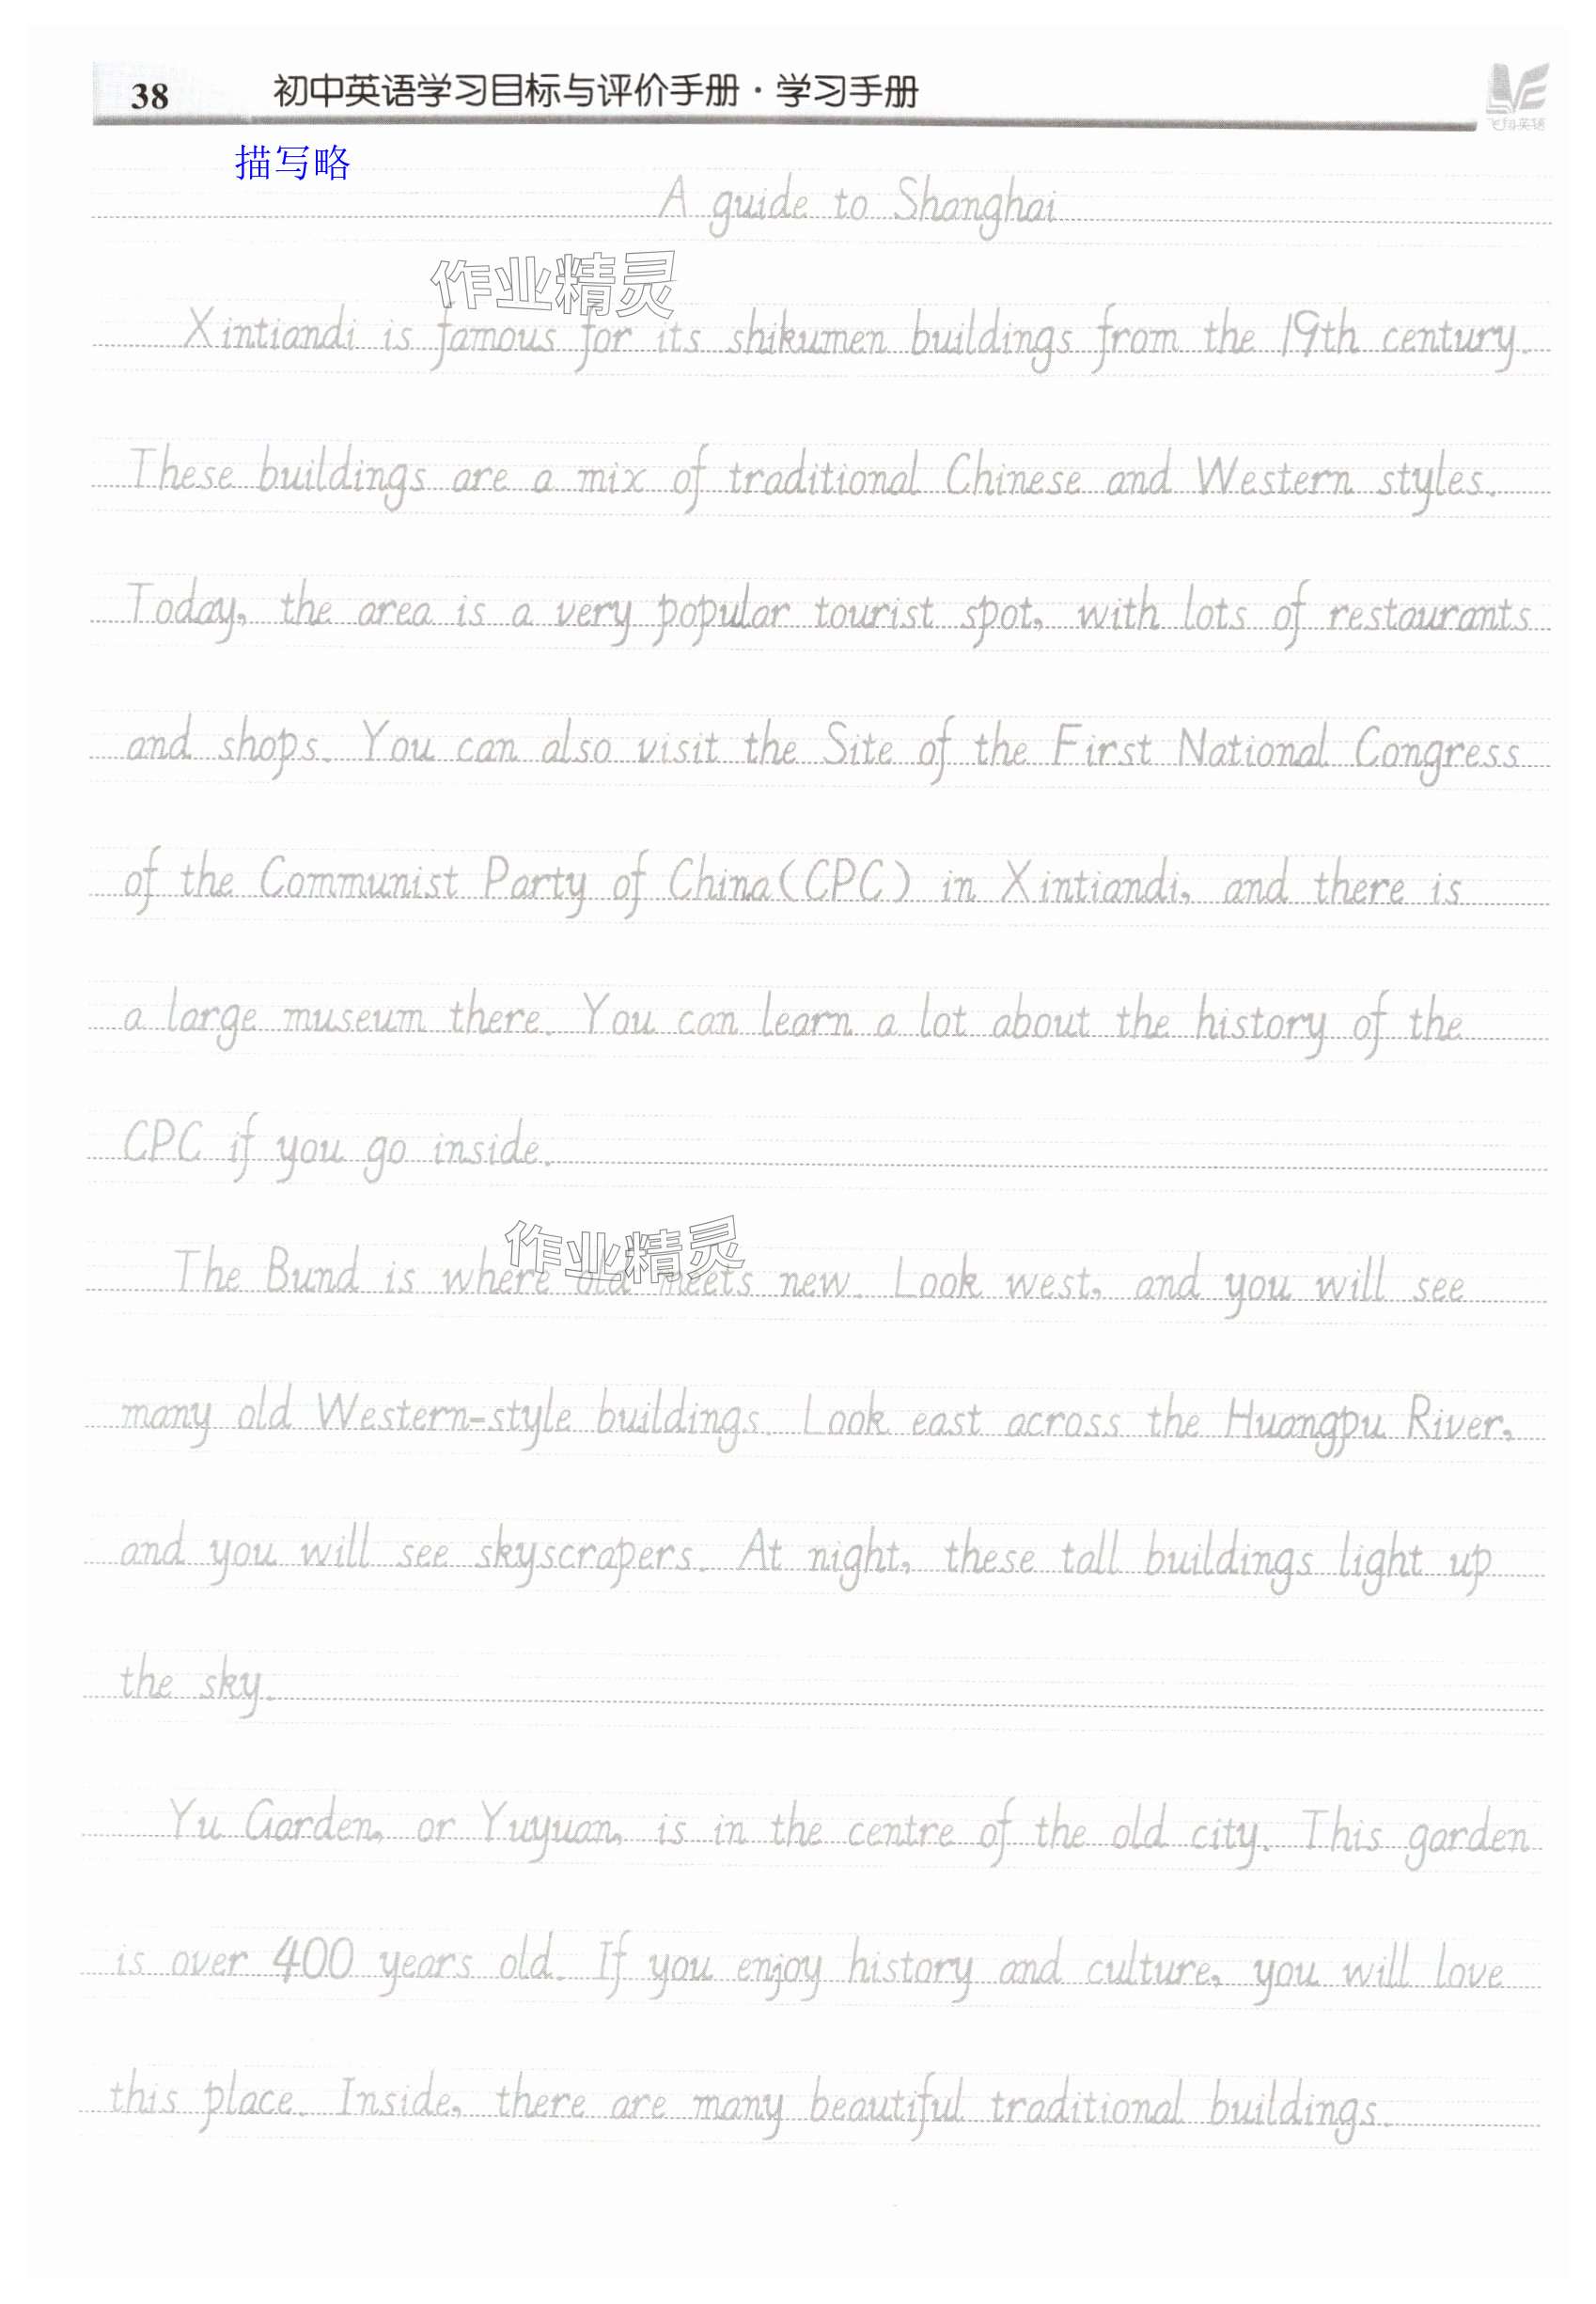 38
初中英语学习目标与评价手册·学习手册
飞翔英语
描写略
A guide to Shanghai
作业精灵
Xintiandi is famous for its shikumen buildings from the 19th century.
These buildings are a mix of traditional Chinese and Western styles.
Today, the area is a very popular tourist spot, with lots of restaurants
and shops. You can also visit the Site of the First National Congress
of the Communist Party of China(CPC) in Xintiandi, and there is
a large museum there. You can learn a lot about the history of the
CPC if you go inside.
作业精灵
The Bund is where old meets new. Look west, and you will see
many old Western-style buildings. Look east across the Huangpu River,
and you will see skyscrapers. At night, these tall buildings light up
the sky.
Yu Garden, or Yuyuan, is in the centre of the old city. This garden
is over 400 years old. If you enjoy history and culture, you will love
this place. Inside, there are many beautiful traditional buildings.